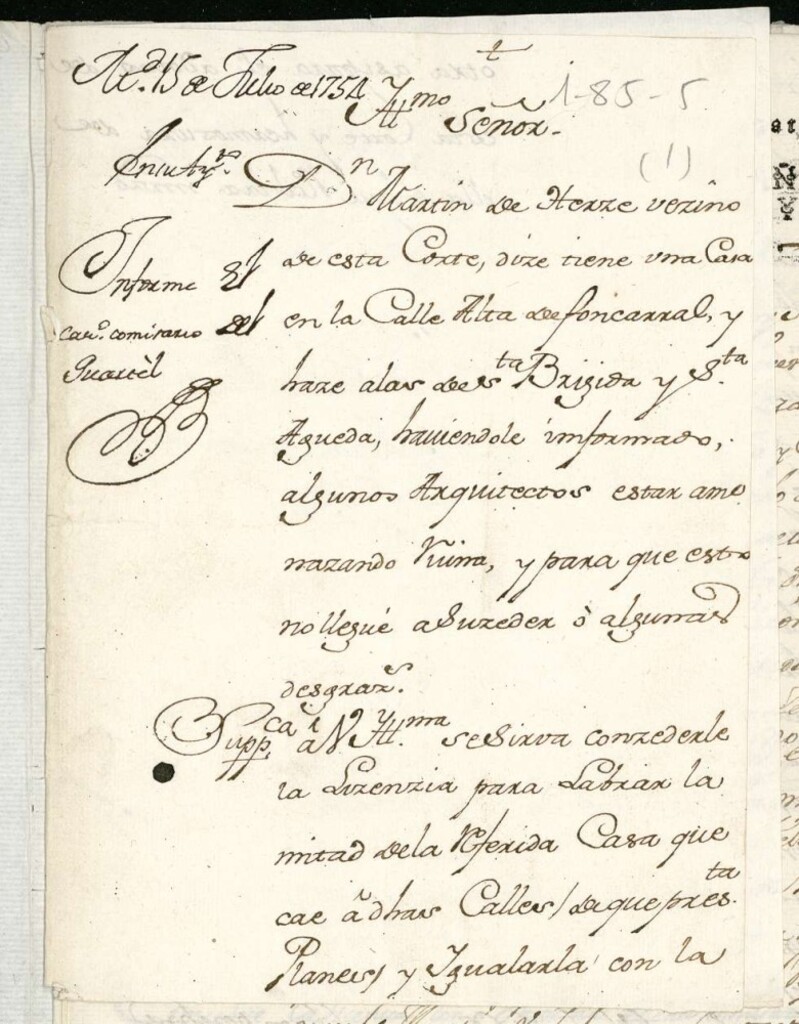 t
M.d 15 de Julio de 1754
Yllmo Señor.
1-85-5
(1)
Dn Martin de Herze vezino
Informe El
cavo. comisario del
Quartèl
de esta Corte, dize tiene vna Casa
en la Calle Alta de foncarral, y
haze a las de Sta Brigida y Sta.
Agueda, haviendole informado,
algunos Arquitectos estar ame
nazando Ruina, y para que esto
no llegué a Suzeder ò algunas
desgrazs.
Suppca à V. Yllma. se Sirva conzederle
la Lizenzia para Labrar la
mitad de la Referida Casa que
cae à dhas Calles / de que presta.
Planes / y Ygualarla con la